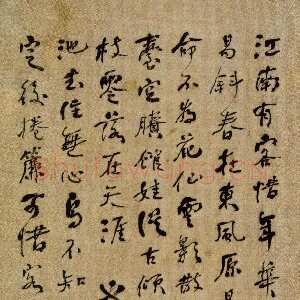 江南有客惜年華
易斜春在東風原是
命不為花仙雲影散
臺空賸館娃從古傾
枝零落在天涯
池去住無心鳥不知
定後捲簾可惜客